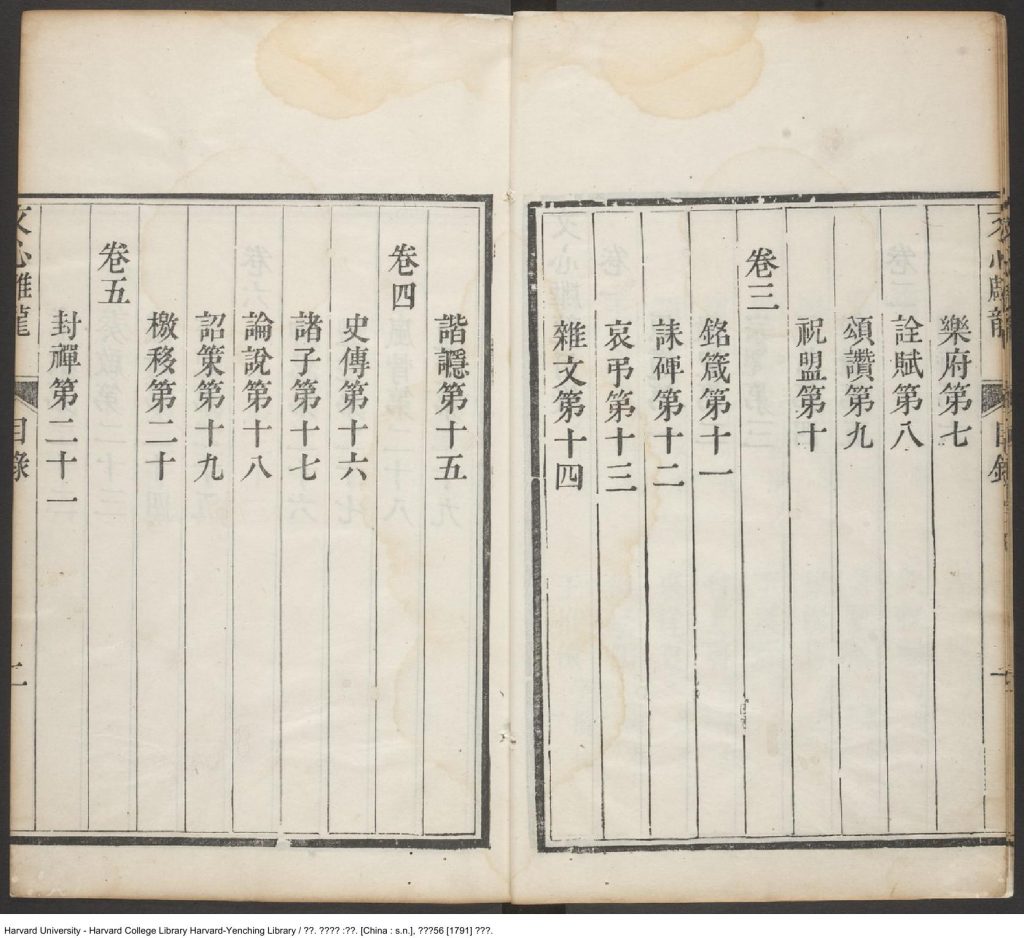 文心雕龍 目錄
樂府第七
詮賦第八
頌讚第九
祝盟第十
卷三
銘箴第十一
誄碑第十二
哀弔第十三
雜文第十四
諧讔第十五
卷四
史傳第十六
諸子第十七
論說第十八
詔策第十九
檄移第二十
卷五
封禪第二十一
文心雕龍 目錄 二
Harvard University - Harvard College Library Harvard-Yenching Library / ??. ???? :??. [China : s.n.], ???56 [1791] ???.